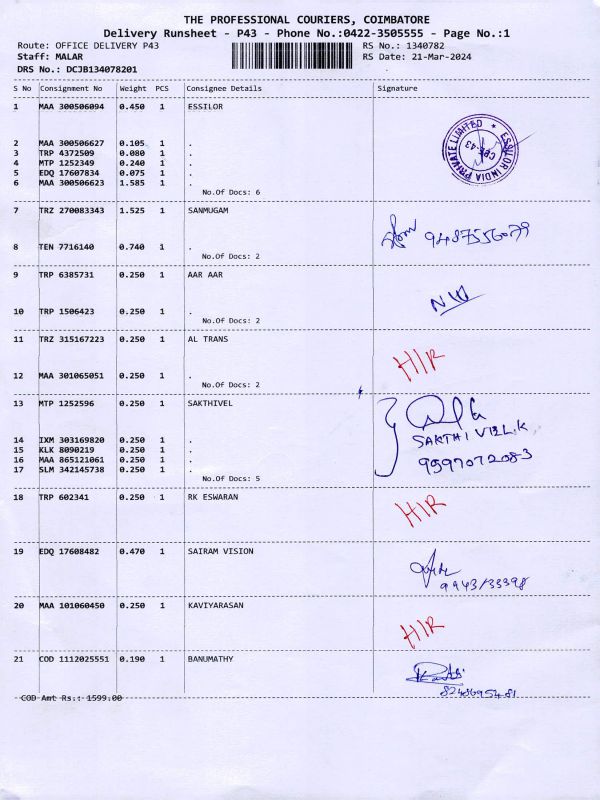 THE PROFESSIONAL COURIERS, COIMBATORE
Delivery Runsheet - P43 - Phone No.:0422-3505555 - Page No.:1
Route: OFFICE DELIVERY P43 RS No.: 1340782
Staff: MALAR RS Date: 21-Mar-2024
DRS No.: DCJB134078201
S No Consignment No Weight PCS Consignee Details Signature
1 MAA 300506094 0.450 1 ESSILOR
ESSILOR INDIA PRIVATE LIMITED * CBE-43
2 MAA 300506627 0.105 1 .
3 TRP 4372509 0.080 1 .
4 MTP 1252349 0.240 1 .
5 EDQ 17607834 0.075 1 .
6 MAA 300506623 1.585 1 .
No.Of Docs: 6
7 TRZ 270083343 1.525 1 SANMUGAM
9487556079
8 TEN 7716140 0.740 1 .
No.Of Docs: 2
9 TRP 6385731 0.250 1 AAR AAR
10 TRP 1506423 0.250 1 .
No.Of Docs: 2
11 TRZ 315167223 0.250 1 AL TRANS
HIR
12 MAA 301065051 0.250 1 .
No.Of Docs: 2
13 MTP 1252596 0.250 1 SAKTHIVEL
14 IXM 303169820 0.250 1 .
SAKTHIVEL.K
15 KLK 8090219 0.250 1 .
16 MAA 865121061 0.250 1 .
17 SLM 342145738 0.250 1 .
No.Of Docs: 5
18 TRP 602341 0.250 1 RK ESWARAN
HIR
19 EDQ 17608482 0.470 1 SAIRAM VISION
9943133398
20 MAA 101060450 0.250 1 KAVIYARASAN
HIR
21 COD 1112025551 0.190 1 BANUMATHY
COD Amt Rs.: 1599.00